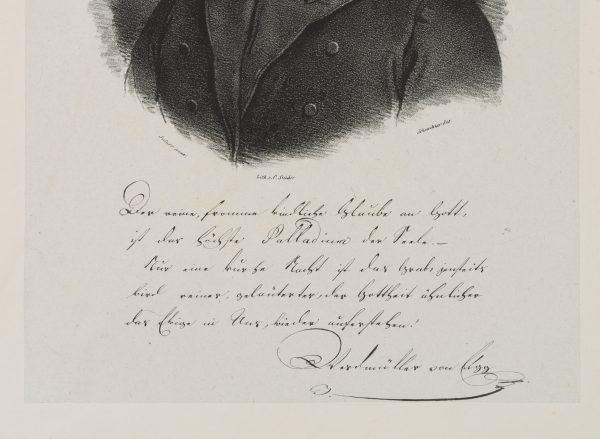 Lith. v. C. Studer
Der reine, fromme kindliche Glaube an Gott,
ist das höchste Palladium der Seele. —
Nur eine kurze Nacht ist das Grab; jenseits
wird reiner, geläuterter, der Gottheit ähnlicher
das Ewige in Uns, wieder auferstehen!
Werdmüller von Elgg